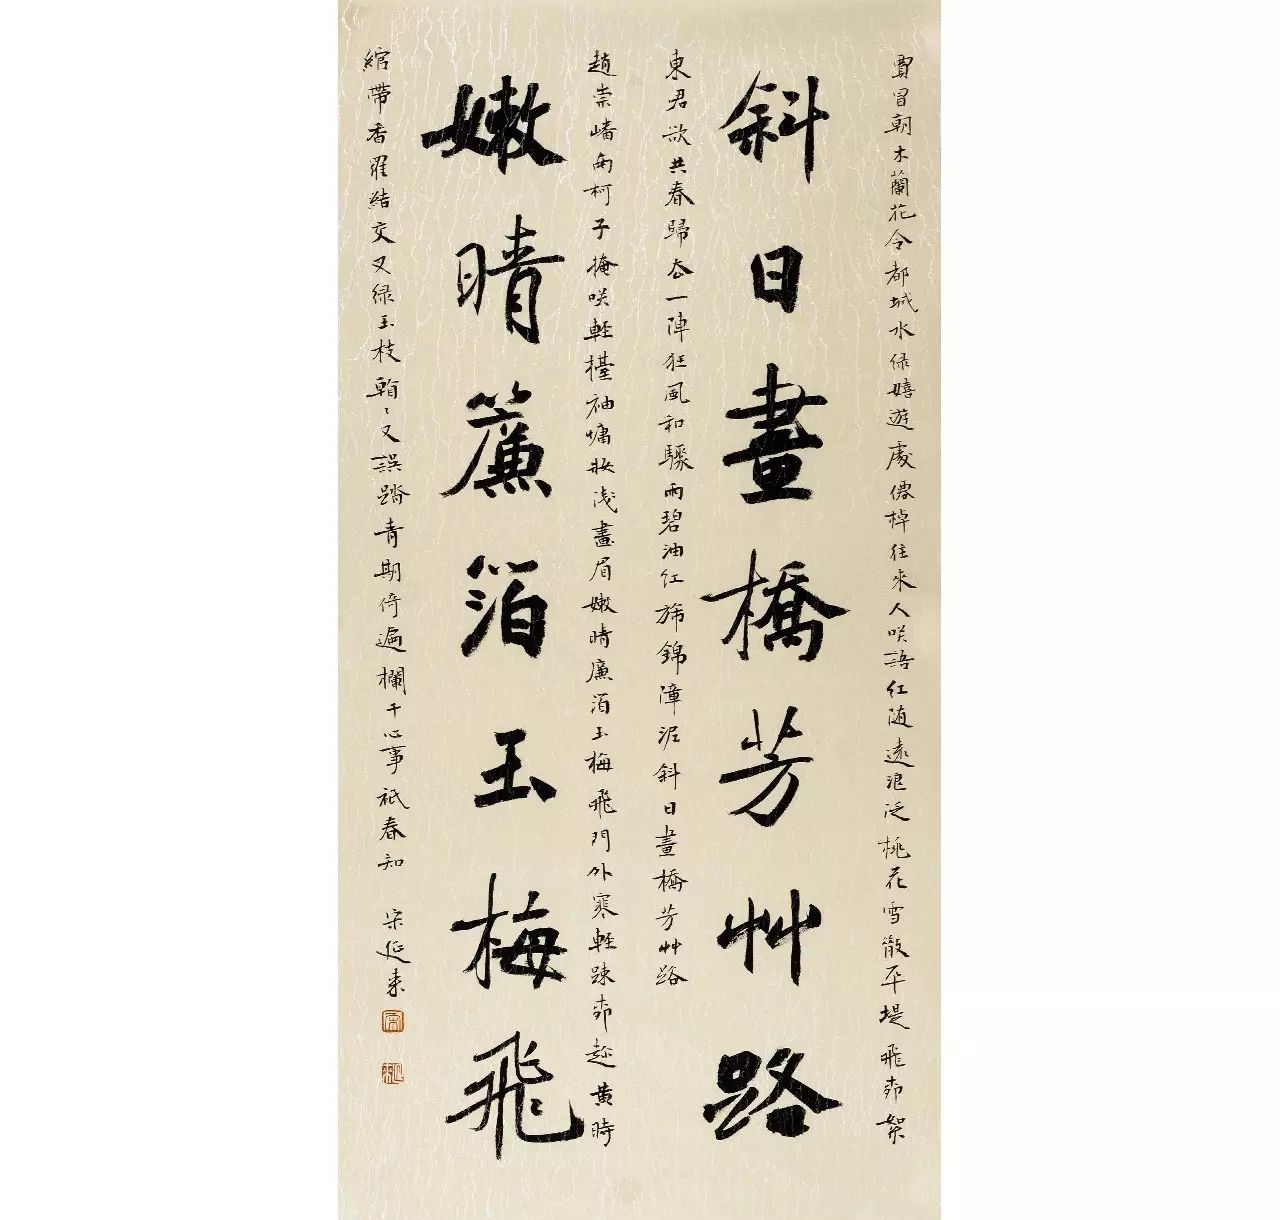 賈昌朝木蘭花令都城水綠嬉遊處僊棹往來人咲語紅隨遠浪泛桃花雪散平堤飛柳絮
斜日畫橋芳艸路
東君欲共春歸去一陣狂風和驟雨碧油紅旆錦漳泥斜日畫橋芳艸路
趙崇嶓南柯子掩咲輕櫖袖慵妝淺畫眉嫩晴廉箔玉梅飛門外寒輕踈柳趁黄時
嫩晴簾箔玉梅飛
綰帶香羅結交叉綠玉枝翰〻又誤踏青期倚遍欄干心事祇春知 宋延来